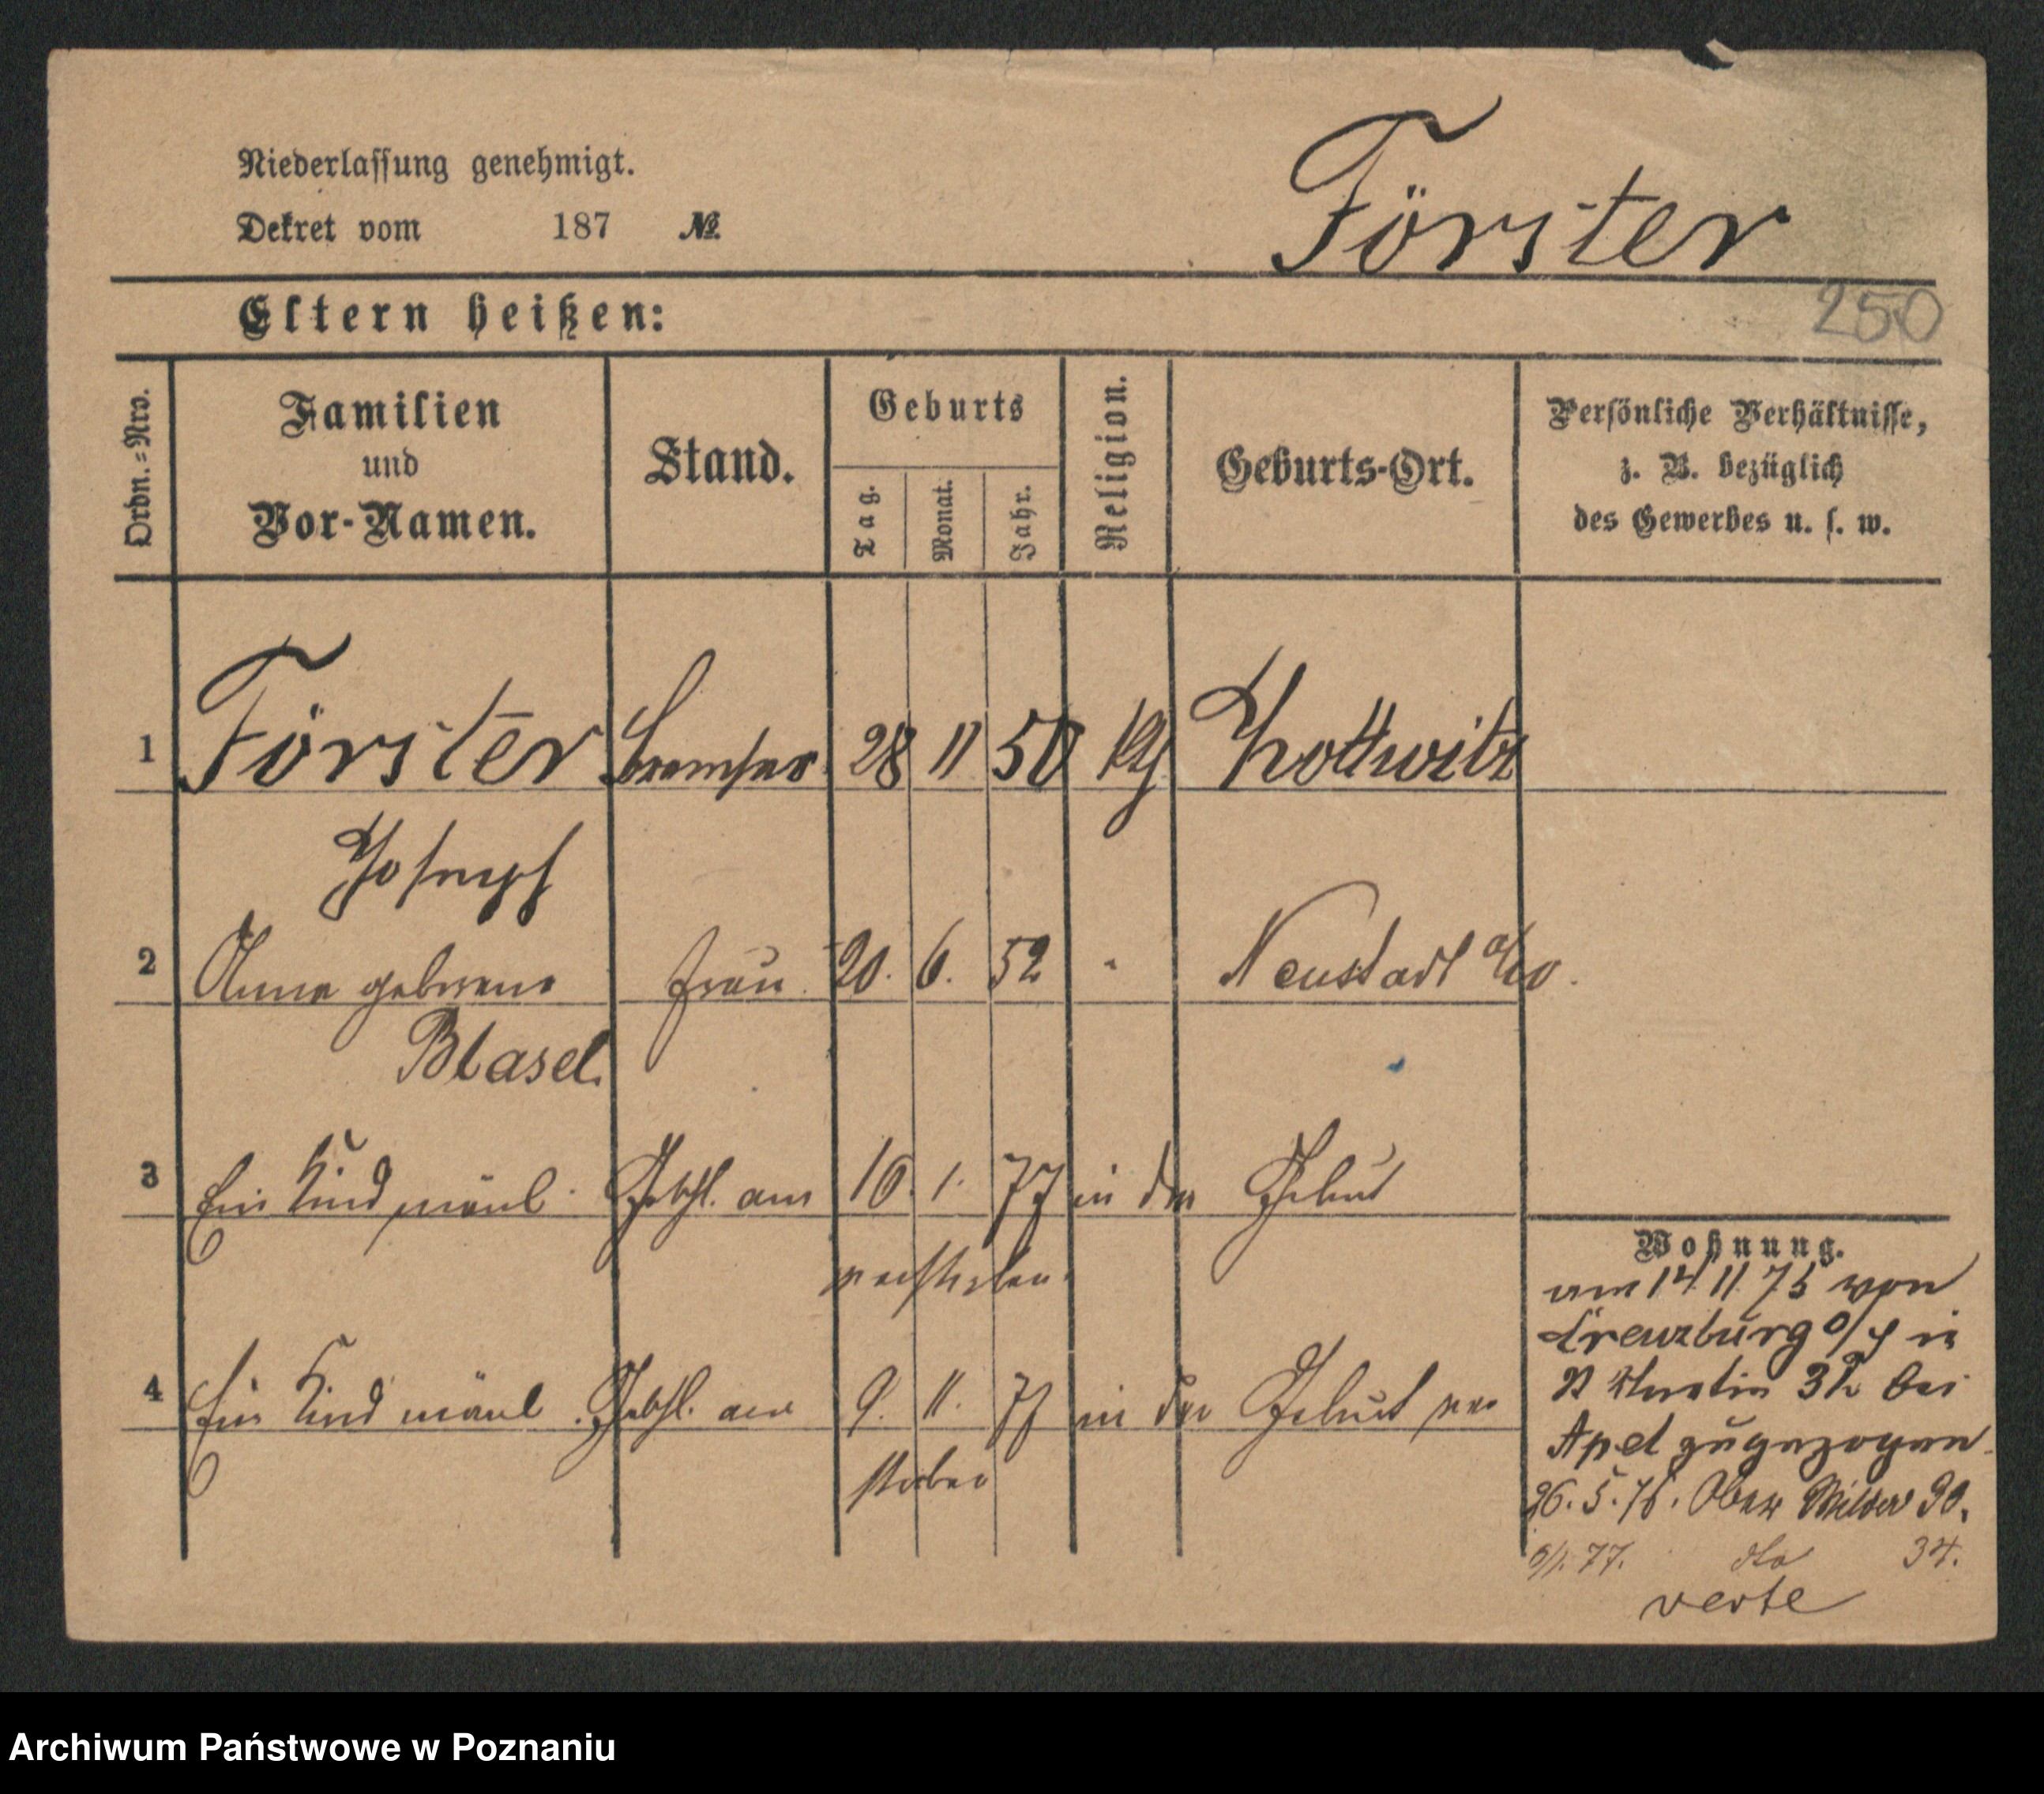 Niederlassung genehmigt.
Dekret vom 187 №
Förster
250
Eltern heißen:
Ordn.-Nro.
Familien und Vor-Namen.
Stand.
Geburts
Tag. Monat. Jahr.
Religion.
Geburts-Ort.
Persönliche Verhältnisse,
z. B. bezüglich
des Gewerbes u. s. w.
1 Förster Bremser 28 11 50 kth Kottwitz
Joseph
2 Anna geborene Frau 20. 6. 52 " Neustadt a/O.
Blasel.
3 Ein Kind männl. am 10. 1. 77 in der Geburt
verstorben.
4 Ein Kind männl am 9. 11. 77 in der Geburt ver
storben
Wohnung.
am 14 11 75 von
Creuzburg O/S in
St Martin 32 bei
Apel zugezogen.
26. 5. 76. Ober Wilda 90.
77. dto 34.
verte
Archiwum Państwowe w Poznaniu